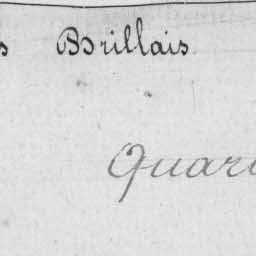 s Brillais
Quar